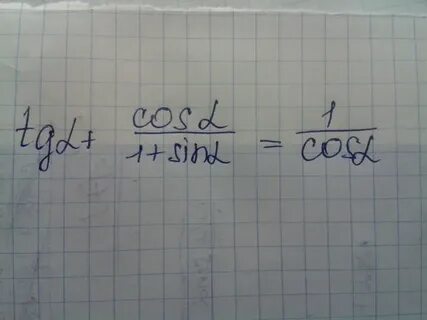 tgα + cosα / 1+sinα = 1 / cosα